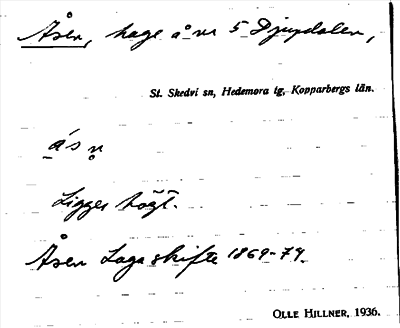 Åsen, hage å nr 5 Djupdalen,
St. Skedvi sn, Hedemora tg, Kopparbergs län.
ásn̥
Ligger högt.
Åsen Laga skifte 1869-74.
OLLE HILLNER, 1936.